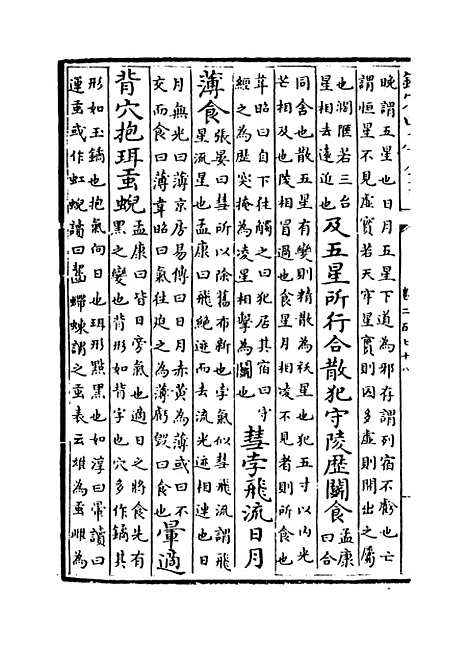 卷二百七十八
晚謂五星也日月五星下道為邪存謂列宿不虧也亡
謂恒星不見虛實若天牢星實則囚多虛則開出之屬
也濶陿若三台
星相去遠近也
及五星所行合散犯守陵歴鬭食
孟康
曰合
同舍也散五星有變則精散為祅星也犯五寸以内光
芒相及也陵相冒過也食星月相凌不見者則所食也
韋昭曰自下往觸之曰犯居其宿曰守
經之為歴突掩為凌星相擊為鬭也
彗孛飛流日月
薄食
張晏曰彗所以除舊布新也孛氣似彗飛流謂飛
星流星也孟康曰飛絶迹而去流光迹相連也日
月無光曰薄京房易傳曰日月赤黄為薄或曰不
交而食曰薄韋昭曰氣往迫之為薄虧毁曰食也
暈適
背穴抱珥䖝蜺
孟康曰皆日旁氣也適日之將食先有
黑之變也背形如背字也穴多作鐍其
形如玉鐍也抱氣向日也珥形點黑也如淳曰暈讀曰
運䖝或作虹蜺讀曰齧螮蝀謂之䖝表云雄為䖝雌為